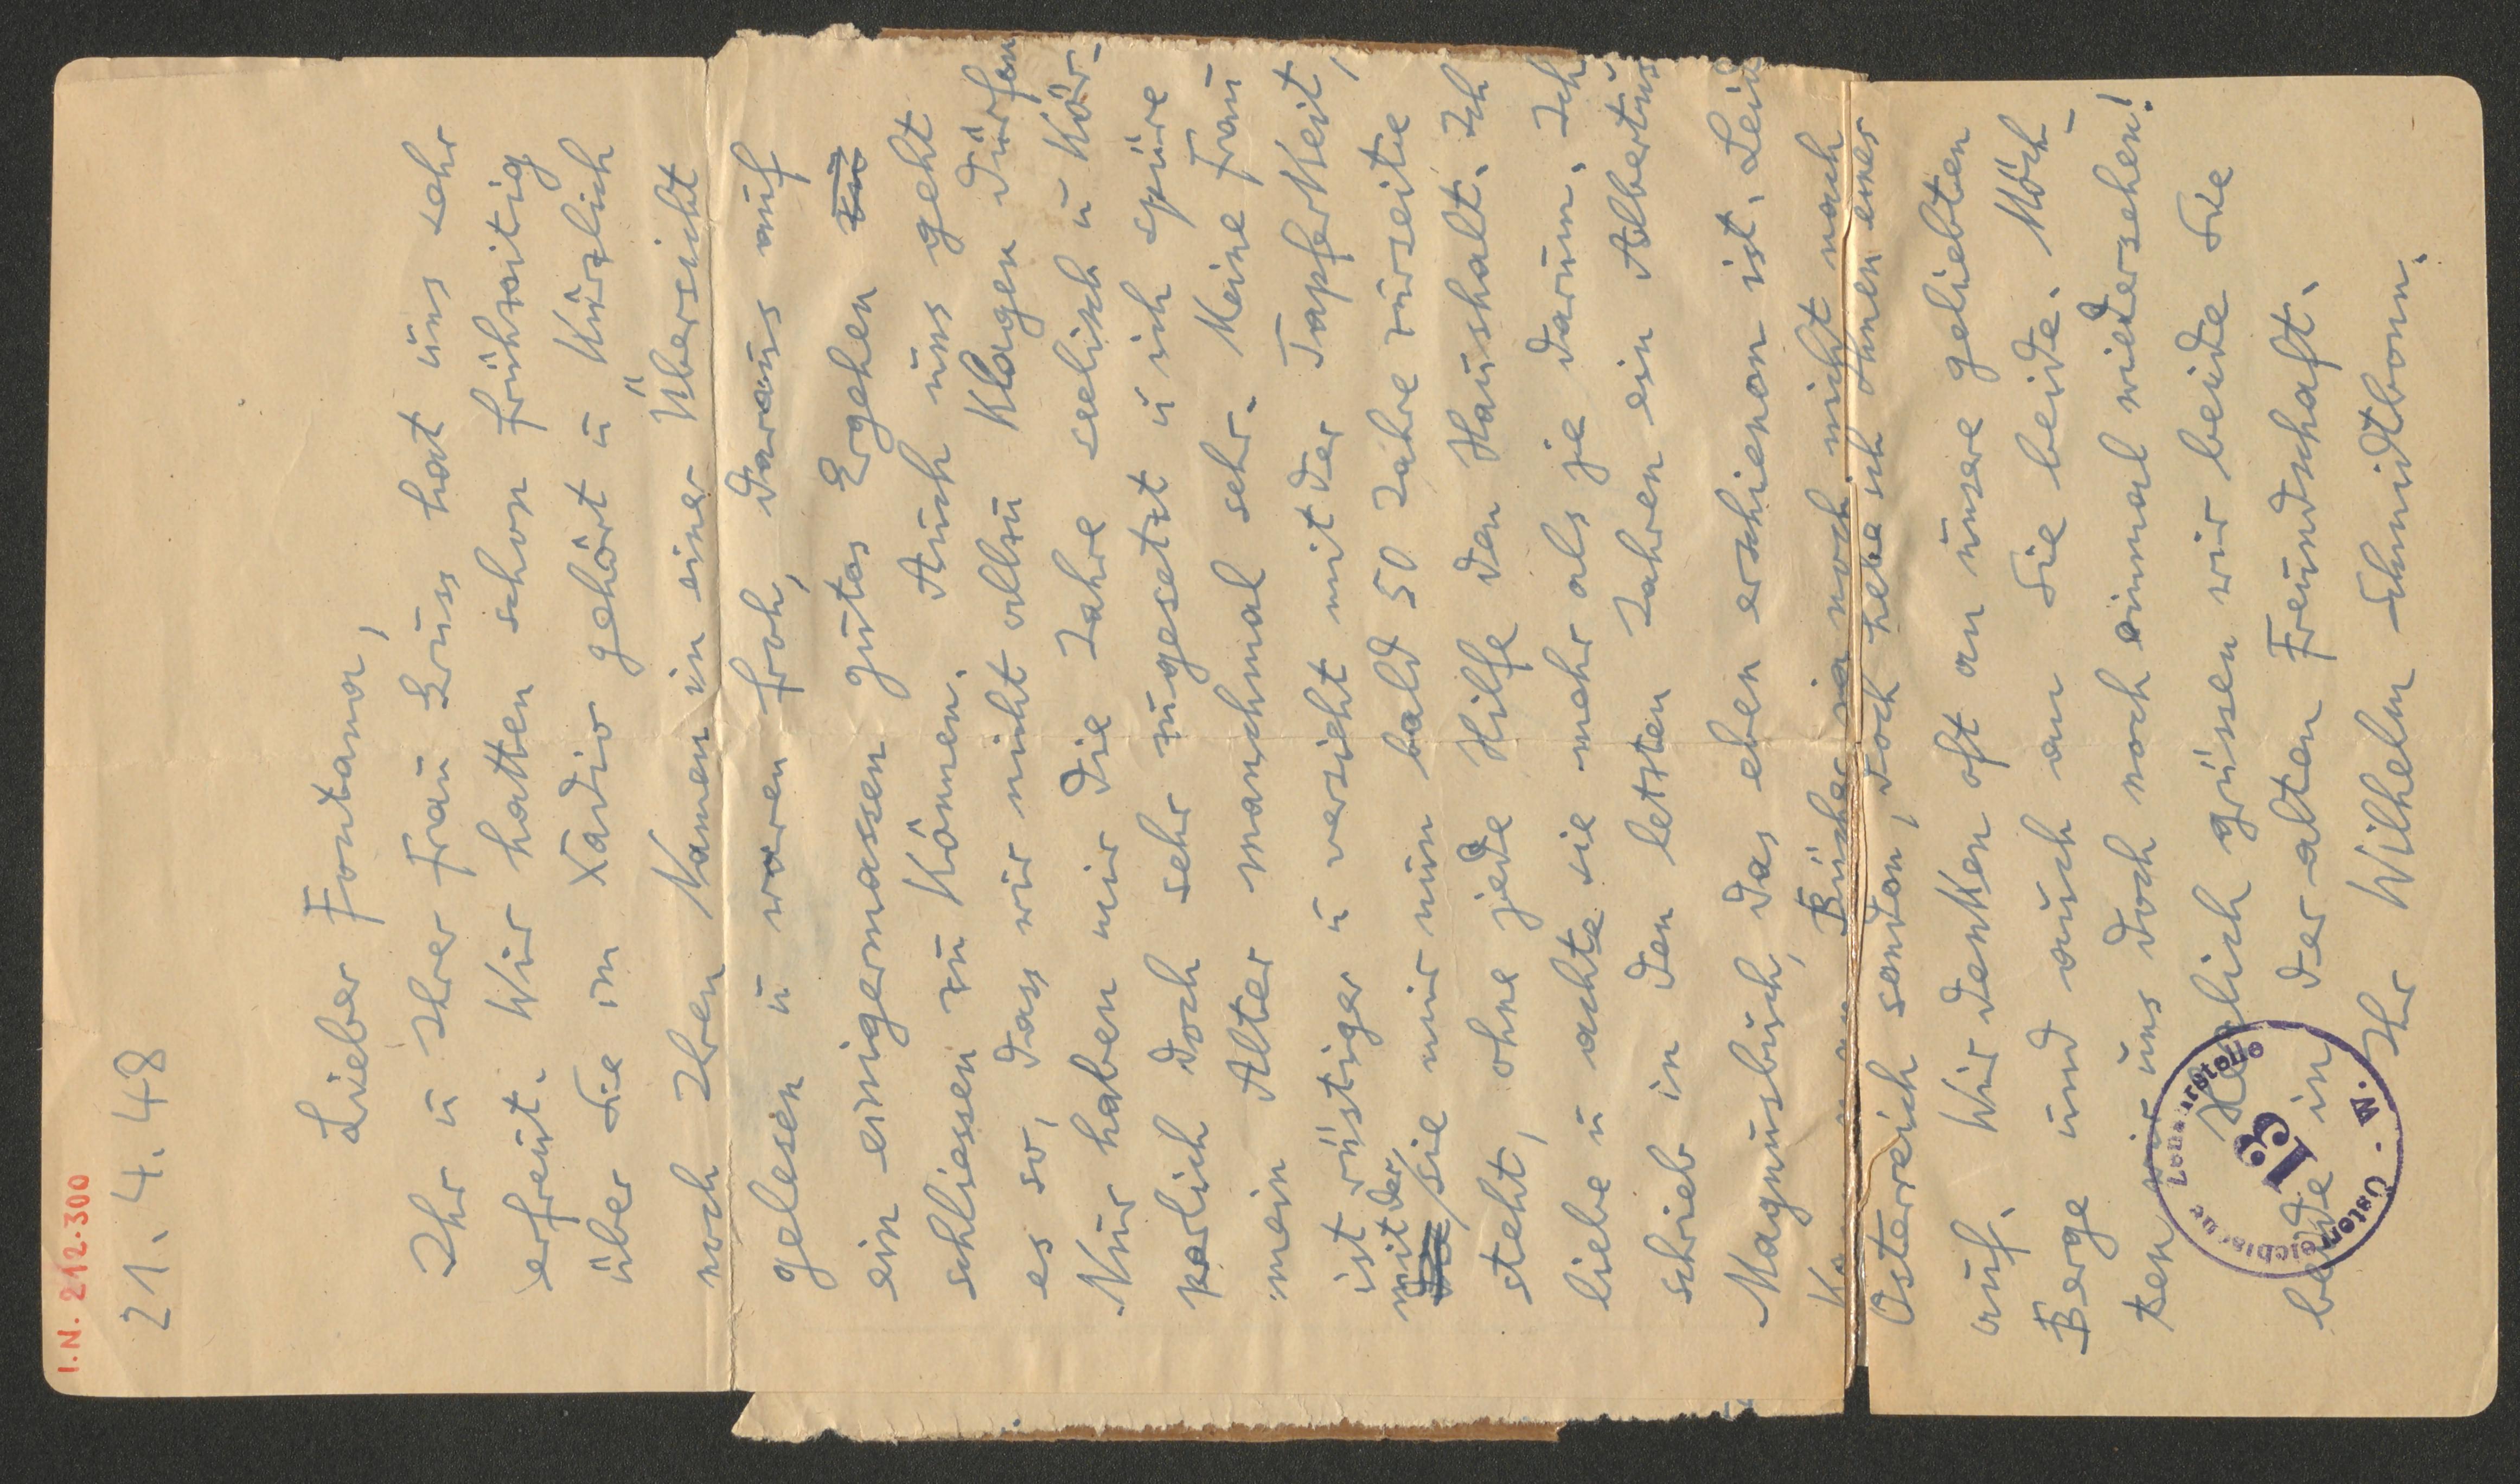 I.N. 212.300
21. 4. 48
Lieber Fontana,
Ihr u Ihrer Frau Gruss hat uns sehr
erfreut. Wir hatten schon frühzeitig
über Sie im Radio gehört u kürzlich
noch Ihren Namen in einer Übersicht
gelesen u waren froh, daraus auf
ein einigermassen gutes Ergehen zu
schliessen zu können. Auch uns geht
es so, dass wir nicht allzu klagen dürfen
Nur haben mir die Jahre seelisch u kör-
perlich doch sehr zugesetzt u ich spüre
mein Alter manchmal sehr. Meine Frau
ist rüstiger u verzieht mit der Tapferkeit,
mit der sie mir nun bald 50 Jahre zurseite
steht, ohne jede Hilfe den Haushalt. Ich
liebe u achte sie mehr als je darum. Ich
schrieb in den letzten Jahren ein Albertus
Magnusbuch, das eben erschienen ist. Leid
Bücher ja noch nicht nach
Österreich senden, doch hebe ich Ihnen eines
auf. Wir denken oft an unsere geliebten
Berge und auch an Sie beide. Möch-
ten wir uns doch noch einmal wiedersehen!
Herzlich grüssen wir beide Sie
beide in der alten Freundschaft.
Ihr Wilhelm Schmidtbonn.
Österreichische Zensurstelle
13
W.